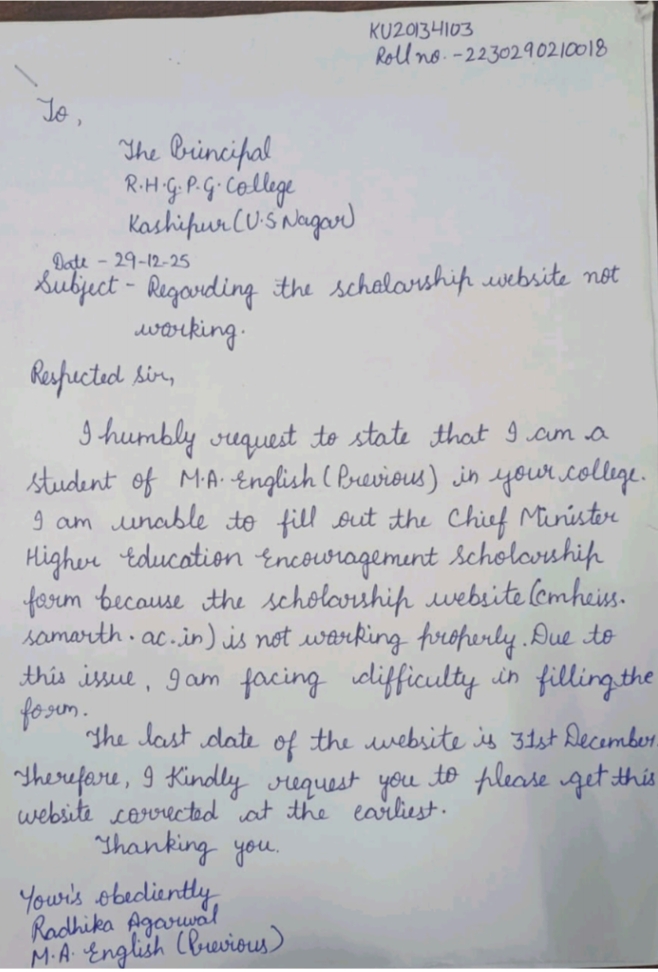 KU20134103
Roll no. -2230290210018
To,
The Principal
R.H.G.P.G. College
Kashipur (U.S Nagar)
Date - 29-12-25
Subject - Regarding the scholarship website not
working.
Respected Sir,
I humbly request to state that I am a
student of M.A. English (Previous) in your college.
I am unable to fill out the Chief Minister
Higher Education Encouragement Scholarship
form because the scholarship website (cmheiss.
samarth.ac.in) is not working properly. Due to
this issue, I am facing difficulty in filling the
form.
The last date of the website is 31st December.
Therefore, I Kindly request you to please get this
website corrected at the earliest.
Thanking you.
Your's obediently
Radhika Agarwal
M.A. English (Previous)